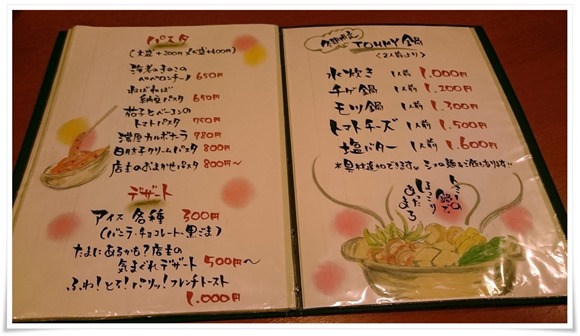 パスタ
(大盛+200円 メガ盛+400円)
海老ときのこの
ペペロンチーノ 650円
ねばねば
納豆パスタ 650円
茄子とベーコンの
トマトパスタ 750円
濃厚カルボナーラ 780円
明太子クリームパスタ 800円
店主のおまかせパスタ 800円〜
デザート
アイス 各種 300円
(バニラ・チョコレート・黒ごま)
たまにあるかも?店主の
気まぐれデザート 500円〜
ふわ!とろ!パリッ!フレンチトースト
1.000円
冬期限定
TOMMY鍋
<2人前より>
水炊き 1人前 1.000円
チゲ鍋 1人前 1.200円
モツ鍋 1人前 1.300円
トマトチーズ 1人前 1.500円
塩バター 1人前 1.600円
※具材追加できます。シメの麺もご飯も有ります!!
鍋で
ほっこり